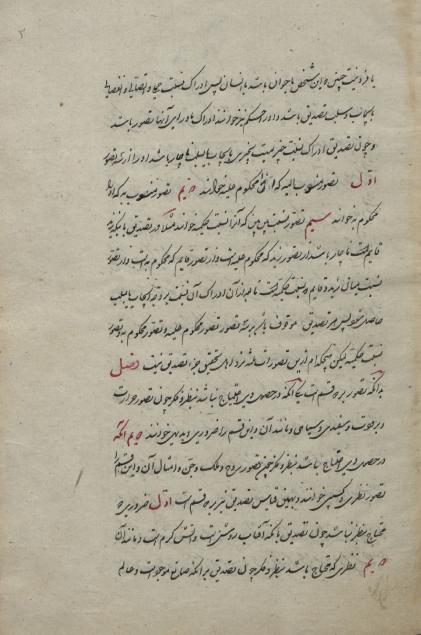 ۲
یا فرس نیست چنین و این شخص یا حیوان باشد یا انسان پس ادراک نسبت
بایجاب و سلب تصدیق باشد و او را حکم نیز خوانند و ادراک ماورای آنها تصور باشد
و چون تصدیق ادراک نسبت چیزیست بچیزی بایجاب یا سلب ناچار باشد او را از سه تصور
اول تصور منسوب الیه که آن را محکوم علیه خوانند دویم تصور منسوب به که آنرا
محکوم به خوانند سیم تصور نسبت بین بین که آنرا نسبت حکمیه خوانند مثلا در تصدیق بآنکه زید
قایم است ناچار باشد از تصور زید که محکوم علیه است و از تصور قایم که محکوم به است و از تصور
نسبت میان زید و قایم که نسبت حکمیه است تا بعد از آن ادراک آن نسبت بر وجه ایجاب یا سلب
حاصل شود پس هر تصدیق موقوف باشد بر سه تصور تصور محکوم علیه و تصور محکوم به و تصور
نسبت حکمیه لیکن هیچکدام از این تصورات ثلثه نزد اهل تحقیق جزء تصدیق نیست فصل
بدانکه تصور بر دو قسم است یکی آنکه در حصول وی احتیاج نباشد بنظر و فکر چون تصور حرارت
و برودت و سفیدی و سیاهی و مانند آن و این قسم را ضروری و بدیهی خوانند دویم آنکه
در حصول وی احتیاج باشد بنظر و فکر چون تصور روح و ملک و جن و امثال آن و این قسم را
تصور نظری و کسبی خوانند و بهمین قیاس تصدیق نیز بر دو قسم است اول ضروری که
محتاج بنظر نباشد چون تصدیق بآنکه آفتاب روشن است و آتش گرم است و مانند آن
دویم نظری که محتاج باشد بنظر و فکر چون تصدیق بر آنکه صانع موجود است و عالم